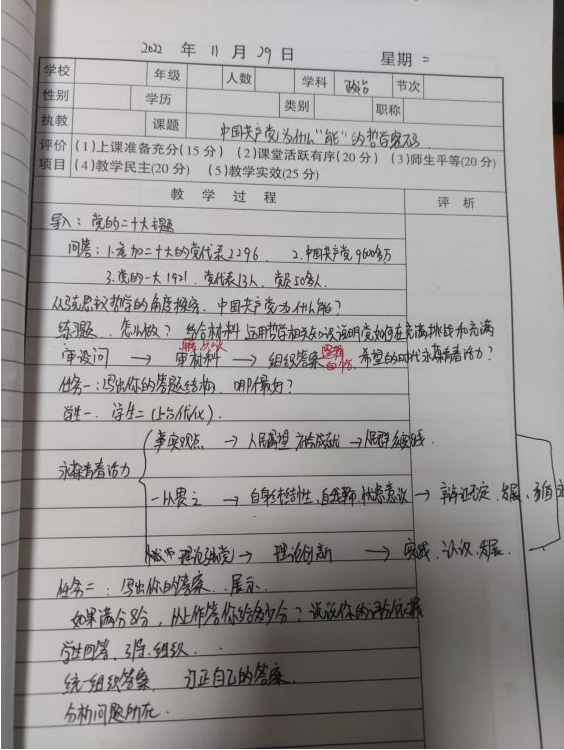 2022 年 11 月 29 日 星期 二
学校 年级 人数 学科 政治 节次
性别 学历 类别 职称
执教 课题 中国共产党为什么“能”的哲学密码
评价 (1)上课准备充分(15 分) (2)课堂活跃有序(20 分) (3)师生平等(20 分)
项目 (4)教学民主(20 分) (5)教学实效(25 分)
教 学 过 程 评 析
导入：党的二十大主题
问答：1.参加二十大的党代表2296 2.中国共产党9600多万
3.党的一大1921 党代表13人 党员50多人
从马克思主义哲学的角度探究 中国共产党为什么能？
练习题 怎么做？ 结合材料 运用哲学相关知识说明党如何在充满挑战和充满
审设问 → 审材料 → 组织答案 希望的时代永葆青春活力？
解 知识 逻辑
任务一：写出你的答题结构，哪个最好？
学生一、学生二（上台优化）
事实观点 → 人民愿望 → 人民群众 实践
永葆青春活力
一以贯之 → 自身 自我革命 忧患意识 → 辩证否定、发展、价值
理论强党 → 理论创新 → 实践、认识、发展
任务二：写出你的答案、展示
如果满分8分，从上作答你给多少分？说说你的评分依据
学生回答、引导、组织
统一组织答案 订正自己的答案
分析问题所在.